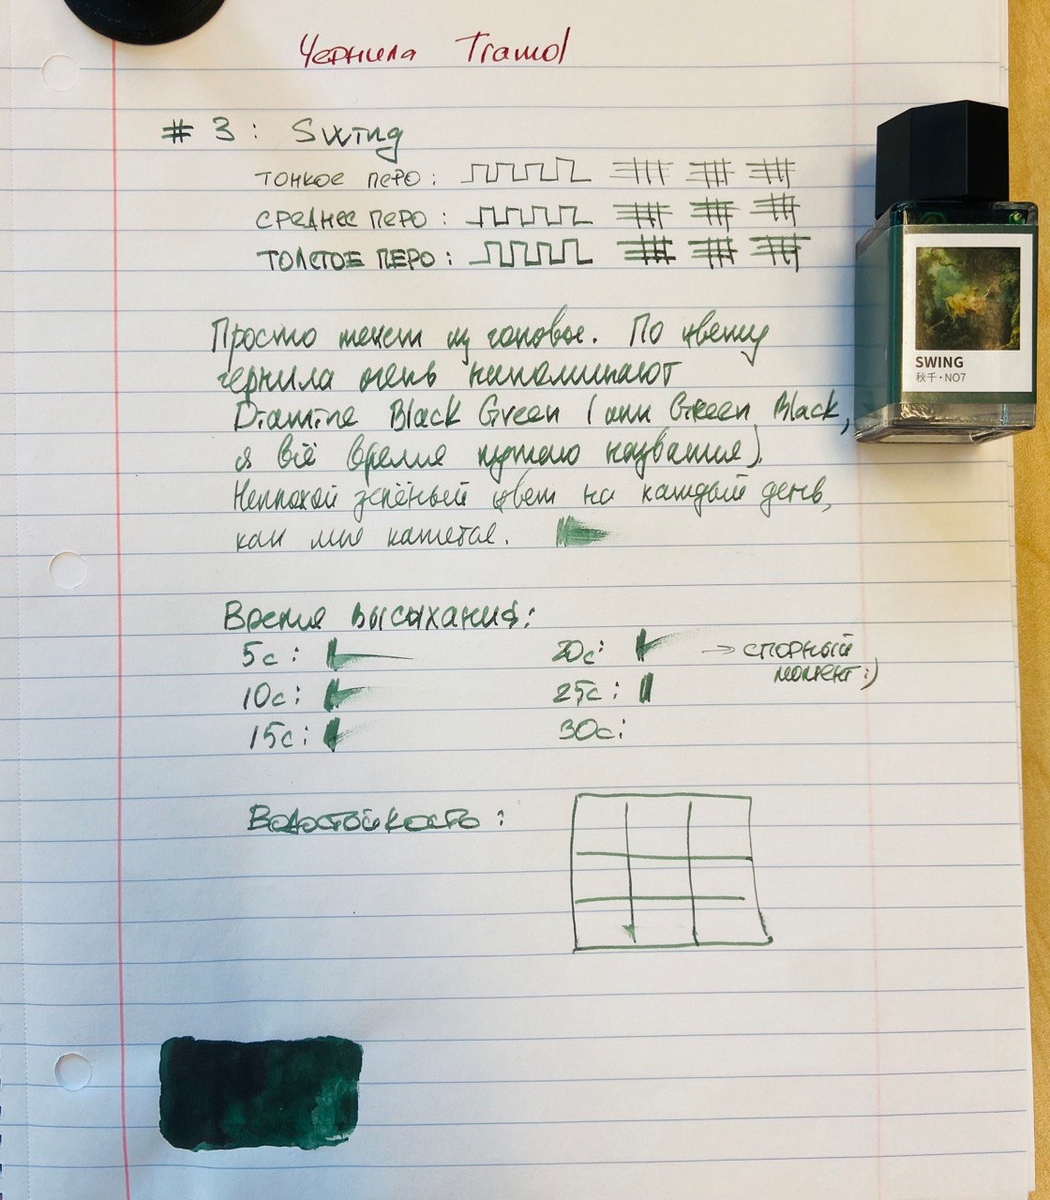 Чернила Tramol
# 3: Swing
ТОНКОЕ ПЕРО:
СРЕДНЕЕ ПЕРО:
ТОЛСТОЕ ПЕРО:
Просто текст из головы. По цвету
чернила очень напоминают
Diamine Black Green (или Green Black,
я всё время путаю названия).
Неплохой зелёный цвет на каждый день,
как мне кажется.
SWING
秋千·NO7
Время высыхания:
5с: 20с: → СПОРНЫЙ
момент:)
10с: 25с:
15с: 30с:
Водостойкость: